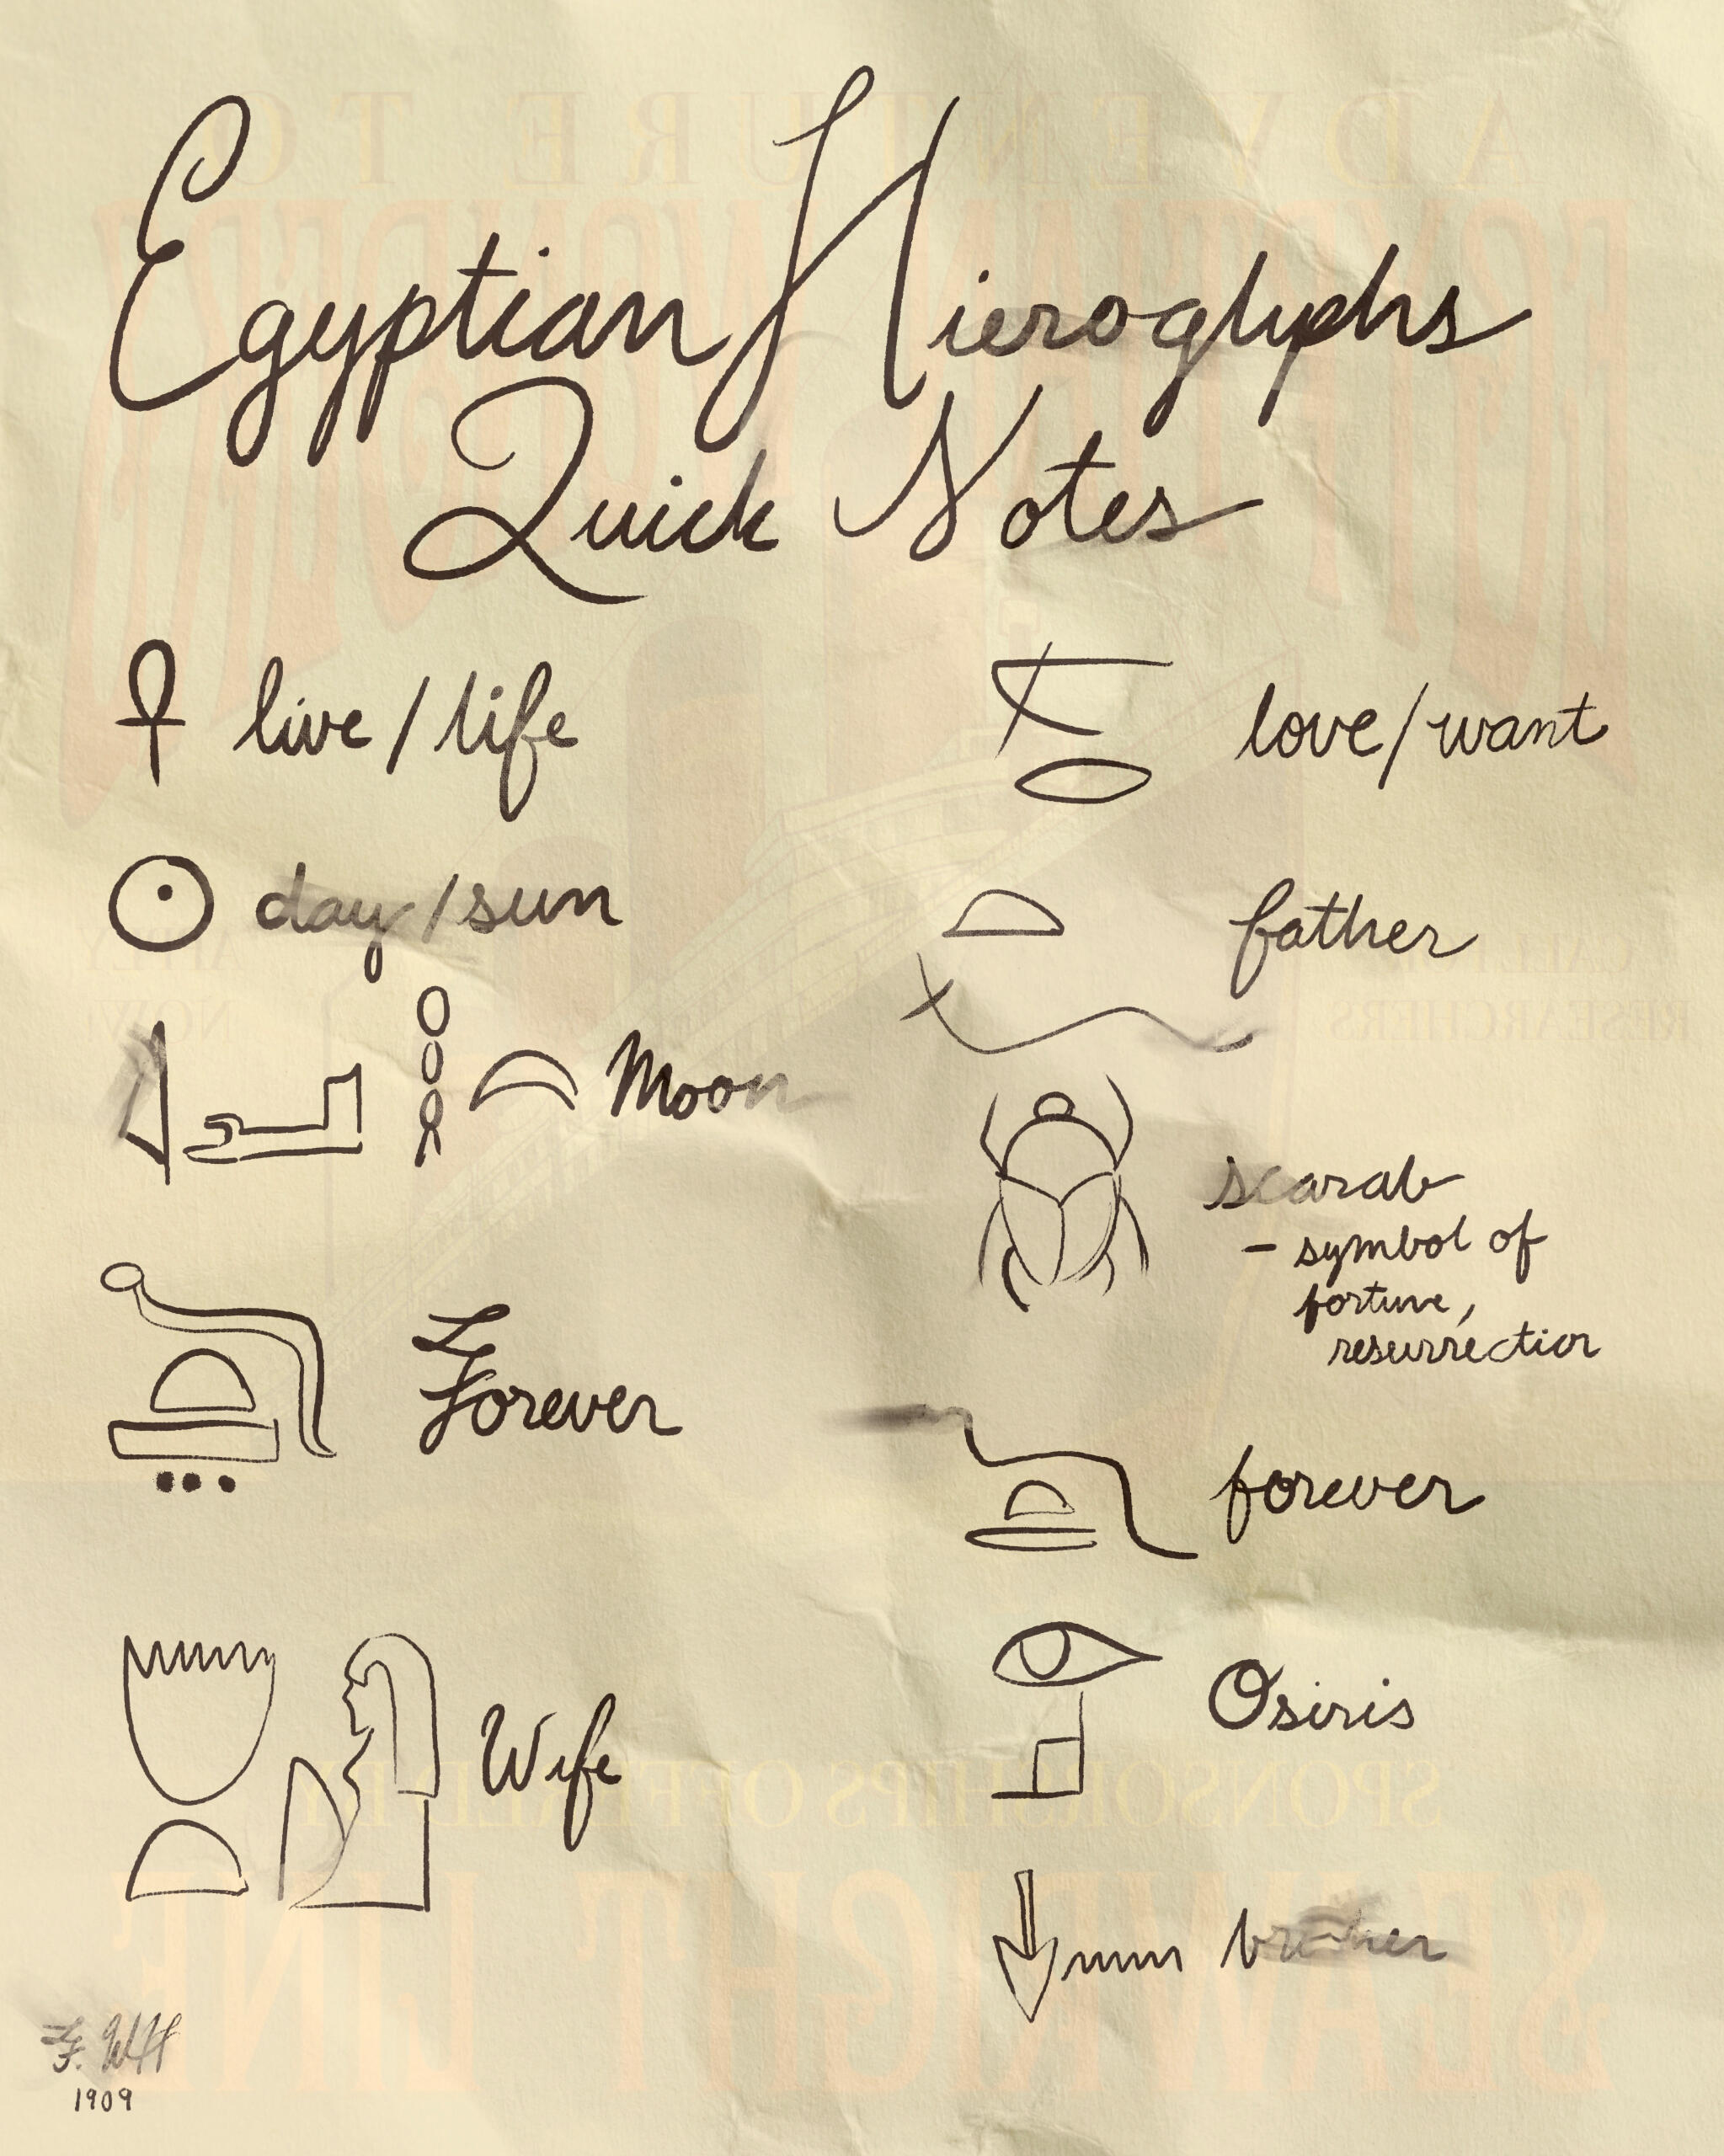 Egyptian Hieroglyphs
Quick Notes
live/life
day/sun
Moon
Forever
Wife
love/want
father
scarab
- symbol of
fortune,
resurrection
forever
Osiris
brother
1909
ADVENTURE TO
CALL FOR
RESEARCHERS
APPLY
NOW!
SPONSORSHIPS OFFERED BY